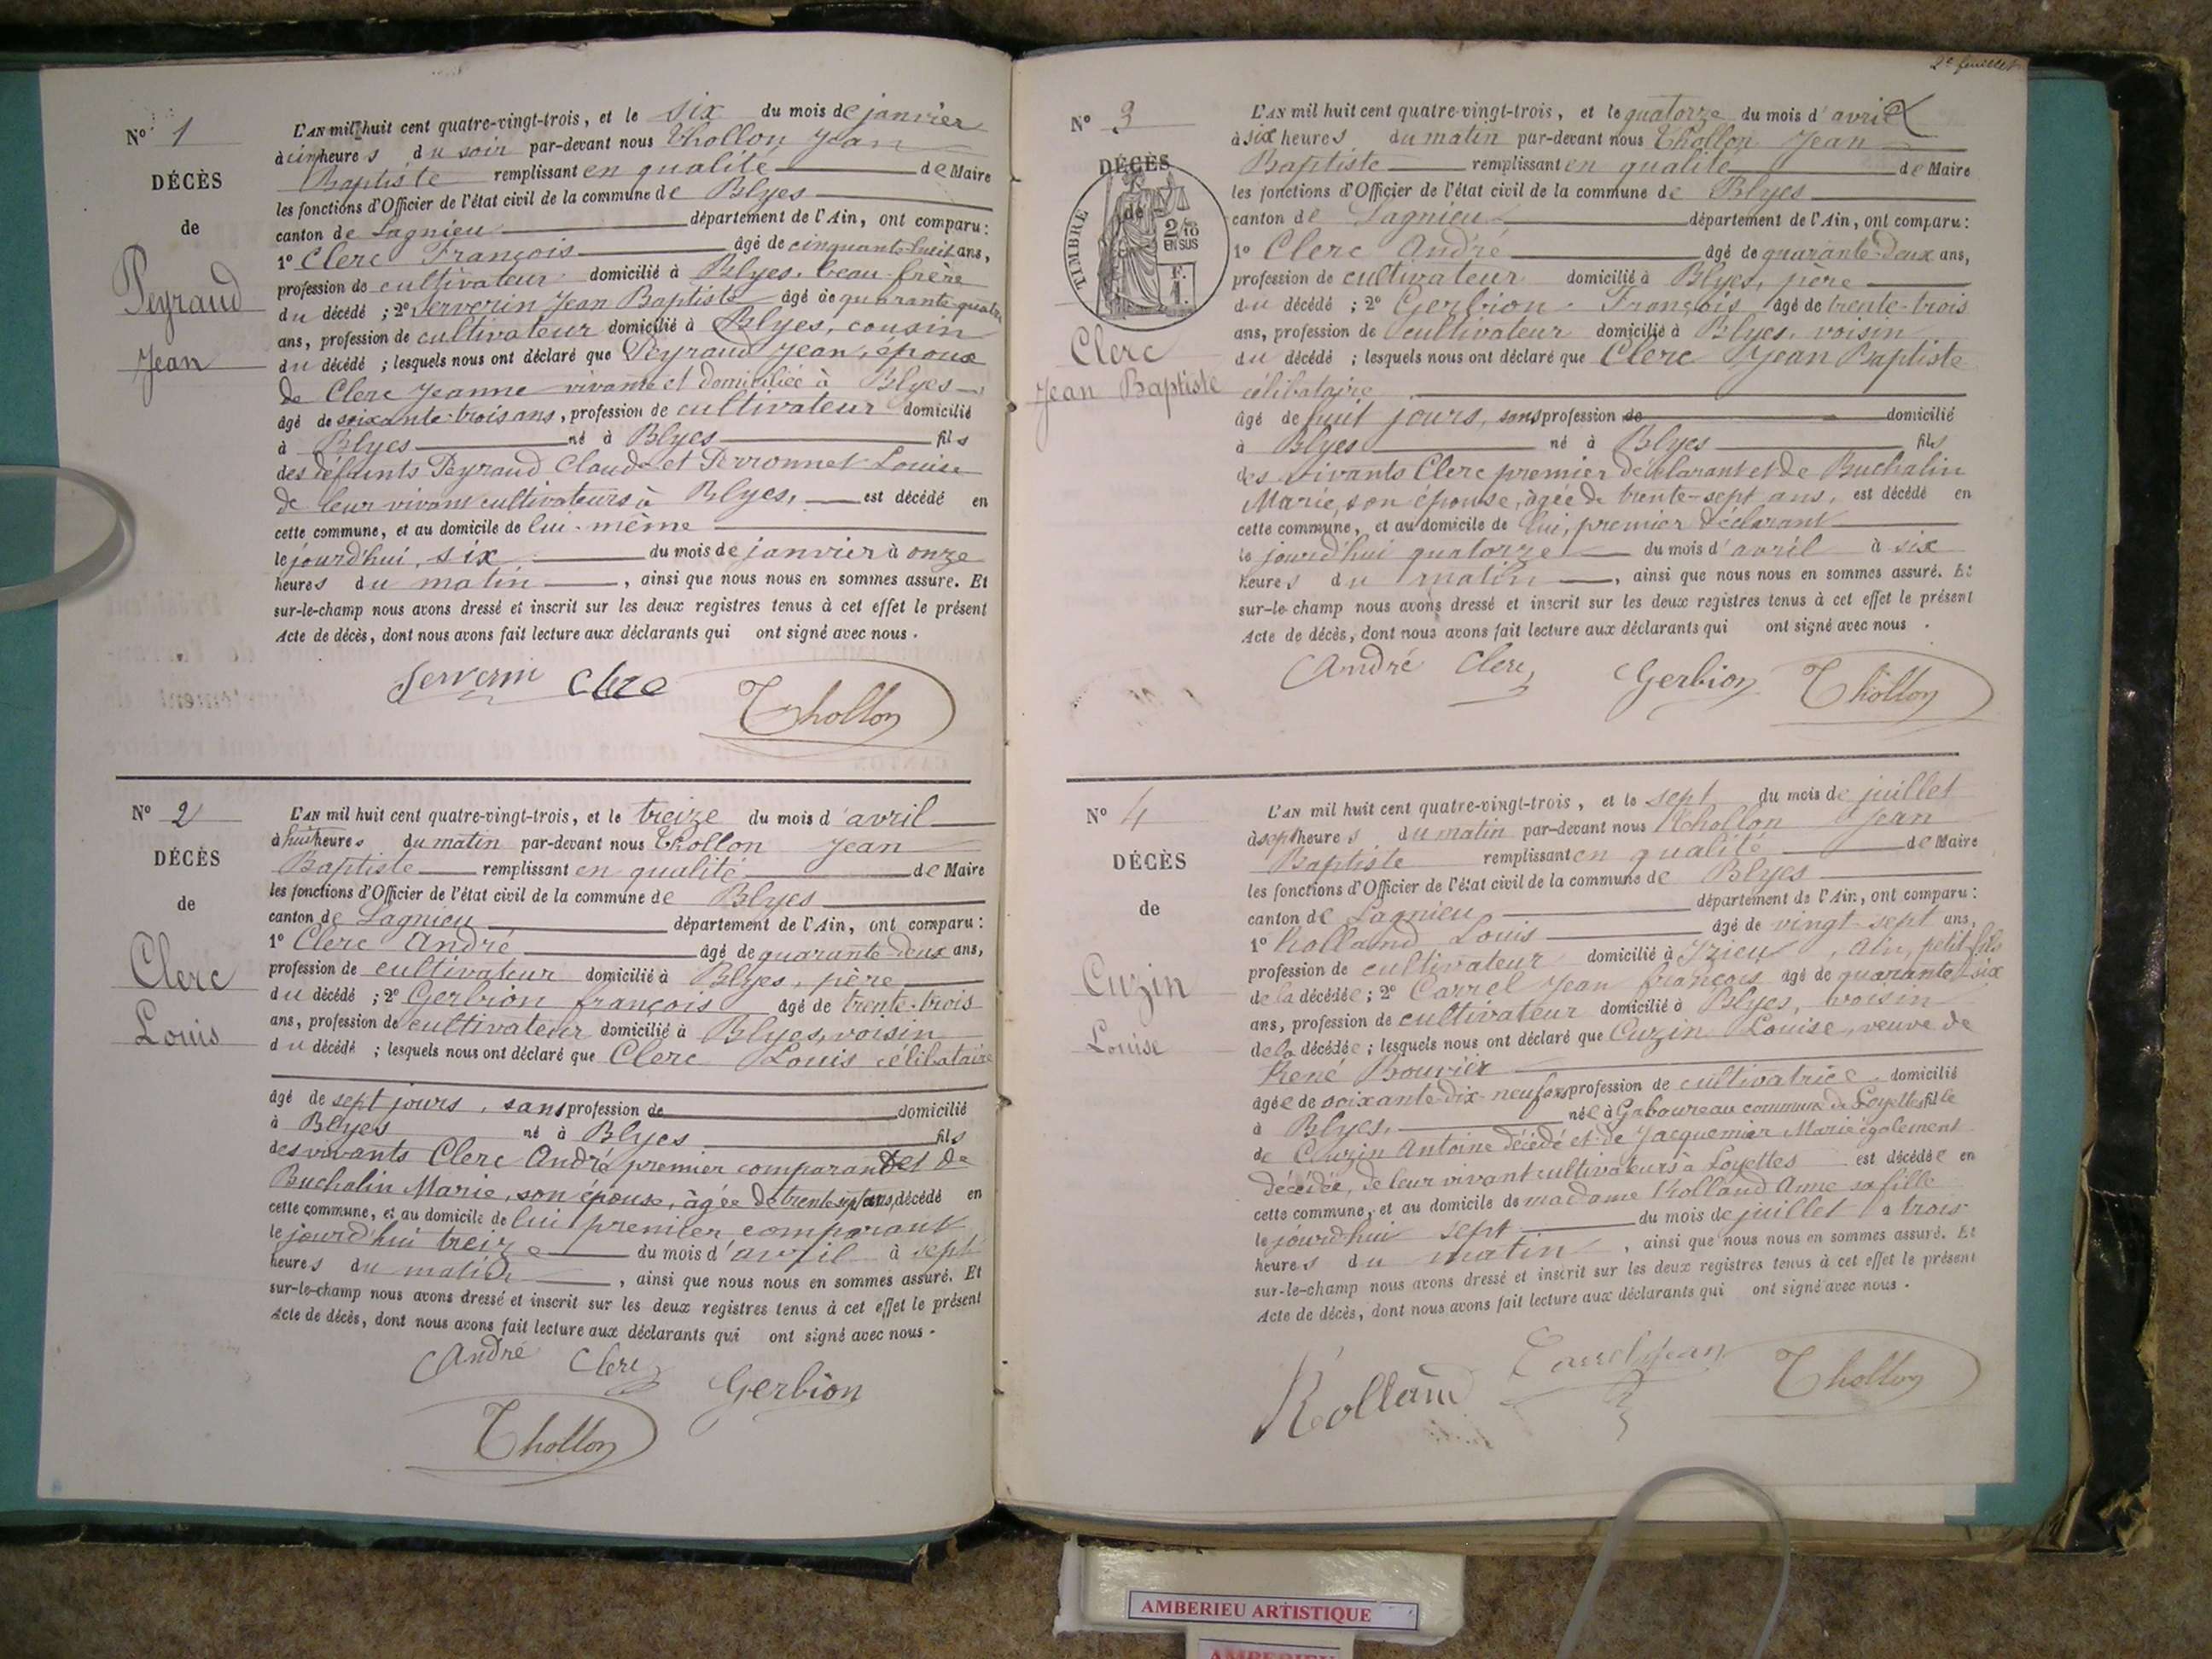 N° 1
DÉCÈS
de
Peyraud
Jean
L'AN mil huit cent quatre-vingt-trois, et le six du mois de janvier
à cinq heures du soir par-devant nous Thollon Jean
Baptiste remplissant en qualité de Maire
les fonctions d'Officier de l'état civil de la commune de Blyes
canton de Lagnieu département de l'Ain, ont comparu :
1° Clerc François âgé de cinquante-huit ans,
profession de cultivateur domicilié à Blyes, beau-frère
du décédé ; 2° Serverin Jean Baptiste âgé de quarante-quatre
ans, profession de cultivateur domicilié à Blyes, cousin
du décédé ; lesquels nous ont déclaré que Peyraud Jean, époux
de Clerc Jeanne vivante et domiciliée à Blyes
âgé de soixante-trois ans, profession de cultivateur domicilié
à Blyes né à Blyes fils
des défunts Peyraud Claude et Perronnet Louise
de leur vivant cultivateurs à Blyes, est décédé en
cette commune, et au domicile de lui-même
le jourd'hui, six du mois de janvier à onze
heures du matin, ainsi que nous nous en sommes assuré. Et
sur-le-champ nous avons dressé et inscrit sur les deux registres tenus à cet effet le présent
Acte de décès, dont nous avons fait lecture aux déclarants qui ont signé avec nous.
Serverin Clerc Thollon
N° 2
DÉCÈS
de
Clerc
Louis
L'AN mil huit cent quatre-vingt-trois, et le treize du mois d'avril
à huit heures du matin par-devant nous Thollon Jean
Baptiste remplissant en qualité de Maire
les fonctions d'Officier de l'état civil de la commune de Blyes
canton de Lagnieu département de l'Ain, ont comparu :
1° Clerc André âgé de quarante-deux ans,
profession de cultivateur domicilié à Blyes, père
du décédé ; 2° Gerbion françois âgé de trente-trois
ans, profession de cultivateur domicilié à Blyes, voisin
du décédé ; lesquels nous ont déclaré que Clerc Louis célibataire
âgé de sept jours, sans profession de domicilié
à Blyes né à Blyes fils
des vivants Clerc André premier comparant et de
Buchalin Marie, son épouse, âgée de trente-sept ans, décédé en
cette commune, et au domicile de lui premier comparant
le jourd'hui treize du mois d'avril à sept
heures du matin, ainsi que nous nous en sommes assuré. Et
sur-le-champ nous avons dressé et inscrit sur les deux registres tenus à cet effet le présent
Acte de décès, dont nous avons fait lecture aux déclarants qui ont signé avec nous.
André Clerc Gerbion
Thollon
2e feuillet
N° 3
DÉCÈS
de
TIMBRE
2/10
EN SUS
F.
1.
Clerc
Jean Baptiste
L'AN mil huit cent quatre-vingt-trois, et le quatorze du mois d'avril
à six heures du matin par-devant nous Thollon Jean
Baptiste remplissant en qualité de Maire
les fonctions d'Officier de l'état civil de la commune de Blyes
canton de Lagnieu département de l'Ain, ont comparu :
1° Clerc André âgé de quarante-deux ans,
profession de cultivateur domicilié à Blyes, père
du décédé ; 2° Gerbion François âgé de trente-trois
ans, profession de cultivateur domicilié à Blyes, voisin
du décédé ; lesquels nous ont déclaré que Clerc Jean Baptiste
célibataire
âgé de huit jours, sans profession de domicilié
à Blyes né à Blyes fils
des vivants Clerc premier déclarant et de Buchalin
Marie, son épouse, âgée de trente-sept ans, est décédé en
cette commune, et au domicile de lui, premier déclarant
le jourd'hui quatorze du mois d'avril à six
heures du matin, ainsi que nous nous en sommes assuré. Et
sur-le-champ nous avons dressé et inscrit sur les deux registres tenus à cet effet le présent
Acte de décès, dont nous avons fait lecture aux déclarants qui ont signé avec nous.
André Clerc Gerbion Thollon
N° 4
DÉCÈS
de
Cuzin
Louise
L'AN mil huit cent quatre-vingt-trois, et le sept du mois de juillet
à sept heures du matin par-devant nous Thollon Jean
Baptiste remplissant en qualité de Maire
les fonctions d'Officier de l'état civil de la commune de Blyes
canton de Lagnieu département de l'Ain, ont comparu :
1° Rolland Louis âgé de vingt-sept ans,
profession de cultivateur domicilié à Izieu, Ain, petit-fils
de la décédée ; 2° Carrel Jean François âgé de quarante-six
ans, profession de cultivateur domicilié à Blyes, voisin
de la décédée ; lesquels nous ont déclaré que Cuzin Louise, veuve de
René Bouvier
âgée de soixante-dix-neuf ans, profession de cultivatrice domicilié
à Blyes, née à Gaboureau commune de Loyettes fille
de Cuzin Antoine décédé et de Jacquemier Marie également
décédée, de leur vivant cultivateurs à Loyettes est décédée en
cette commune, et au domicile de madame Rolland Anne sa fille
le jourd'hui sept du mois de juillet à trois
heures du matin, ainsi que nous nous en sommes assuré. Et
sur-le-champ nous avons dressé et inscrit sur les deux registres tenus à cet effet le présent
Acte de décès, dont nous avons fait lecture aux déclarants qui ont signé avec nous.
Rolland Carrel Jean Thollon
AMBERIEU ARTISTIQUE
AMBERIEU